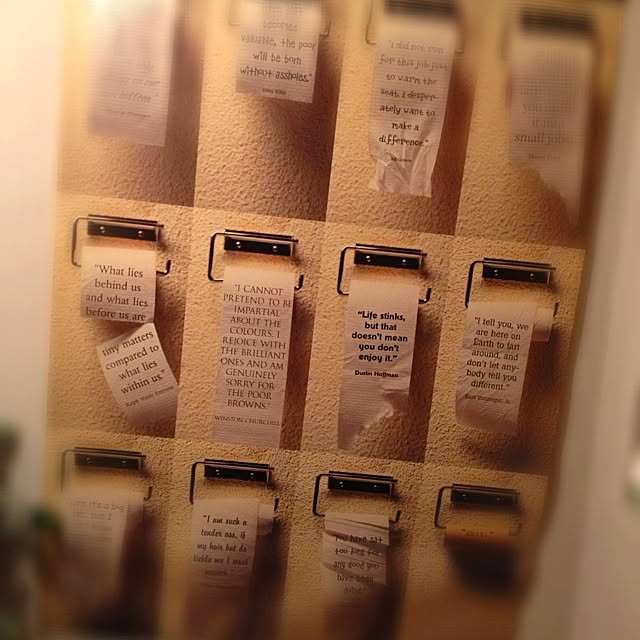 becomes
valuable, the poor
will be born
without assholes."
"I did not run
for this job just
to warm the
seat. I desper-
ately want to
make a
difference."
small jobs
"What lies
behind us
and what lies
before us are
tiny matters
compared to
what lies
within us."
Ralph Waldo Emerson
"I CANNOT
PRETEND TO BE
IMPARTIAL
ABOUT THE
COLOURS. I
REJOICE WITH
THE BRILLIANT
ONES AND AM
GENUINELY
SORRY FOR
THE POOR
BROWNS."
WINSTON CHURCHILL
"Life stinks,
but that
doesn't mean
you don't
enjoy it."
Dustin Hoffman
"I tell you, we
are here on
Earth to fart
around, and
don't let any-
body tell you
different."
Kurt Vonnegut, Jr.
it's a big
"I am such a
tender ass, if
my hair but do
tickle me I must
scratch."
You have sat
too long for
any good you
have been
doing